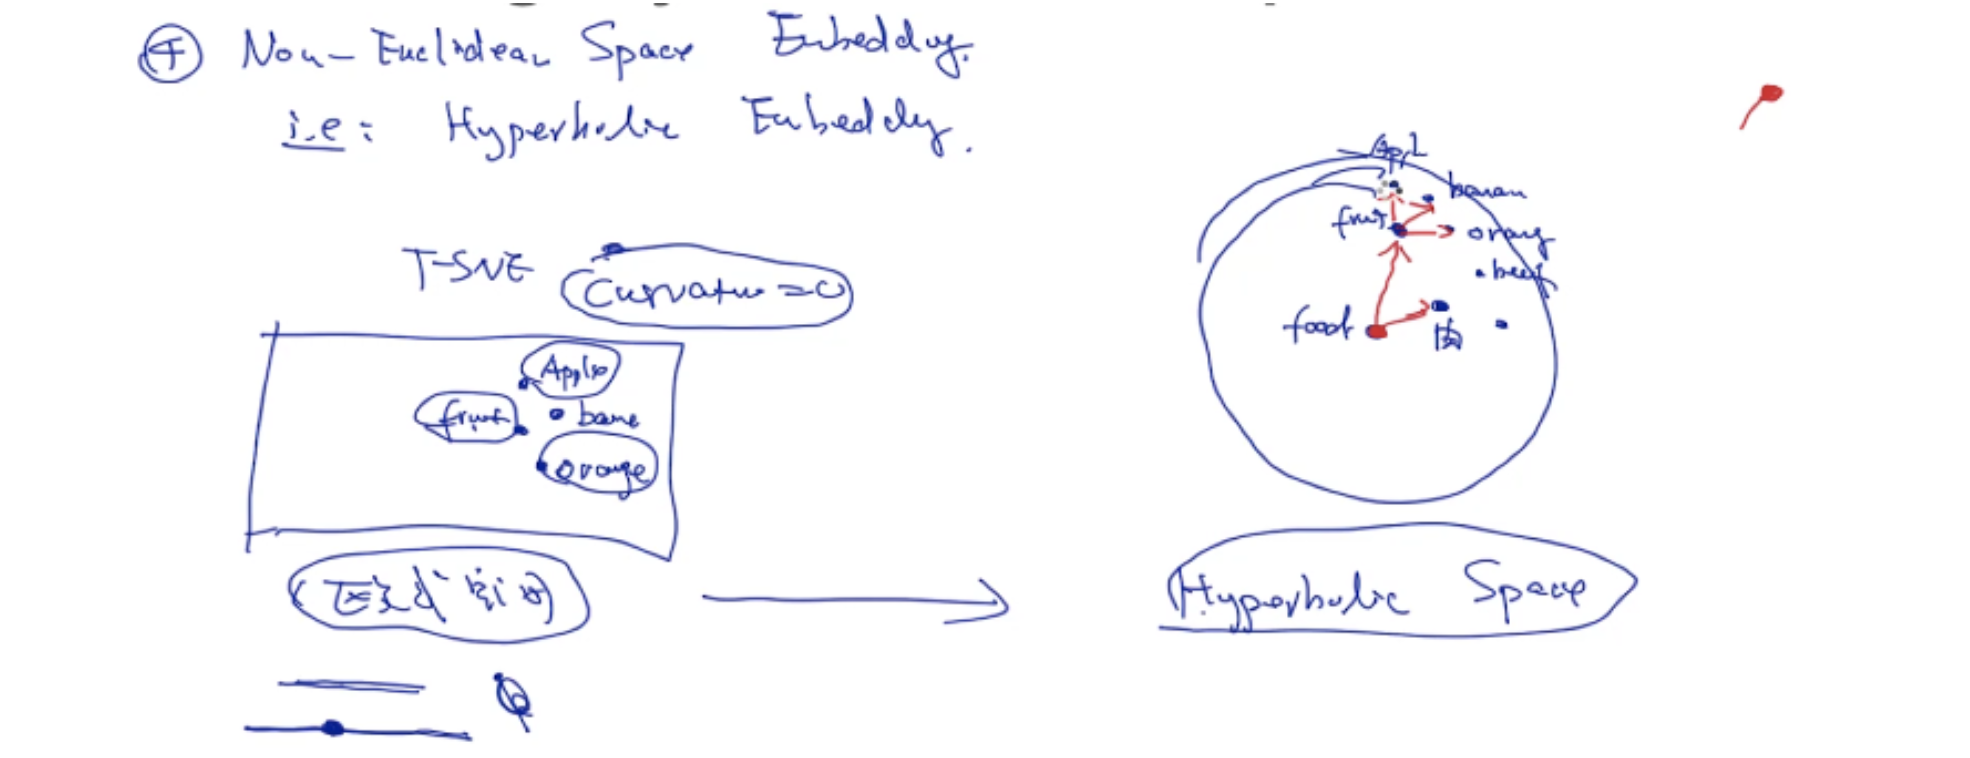 ④ Non-Euclidean Space Embeddng.
i.e: Hyperbolic Embeddng.
T-SNE
Curvature=0
Apple
fruit
bana
orange
Appl
banan
fruit
orang
beef
food
肉
Hyperbolic Space